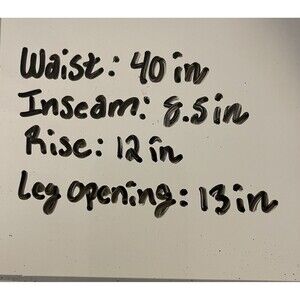 Waist: 40 in
Inseam: 8.5 in
Rise: 12 in
Leg Opening: 13 in